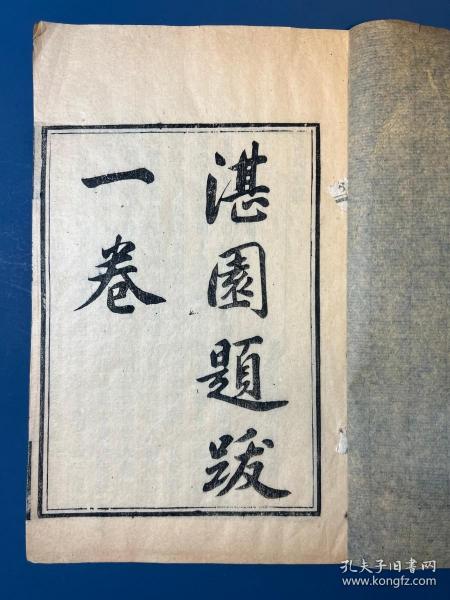 湛園題跋
一卷
孔夫子旧书网
www.kongfz.com